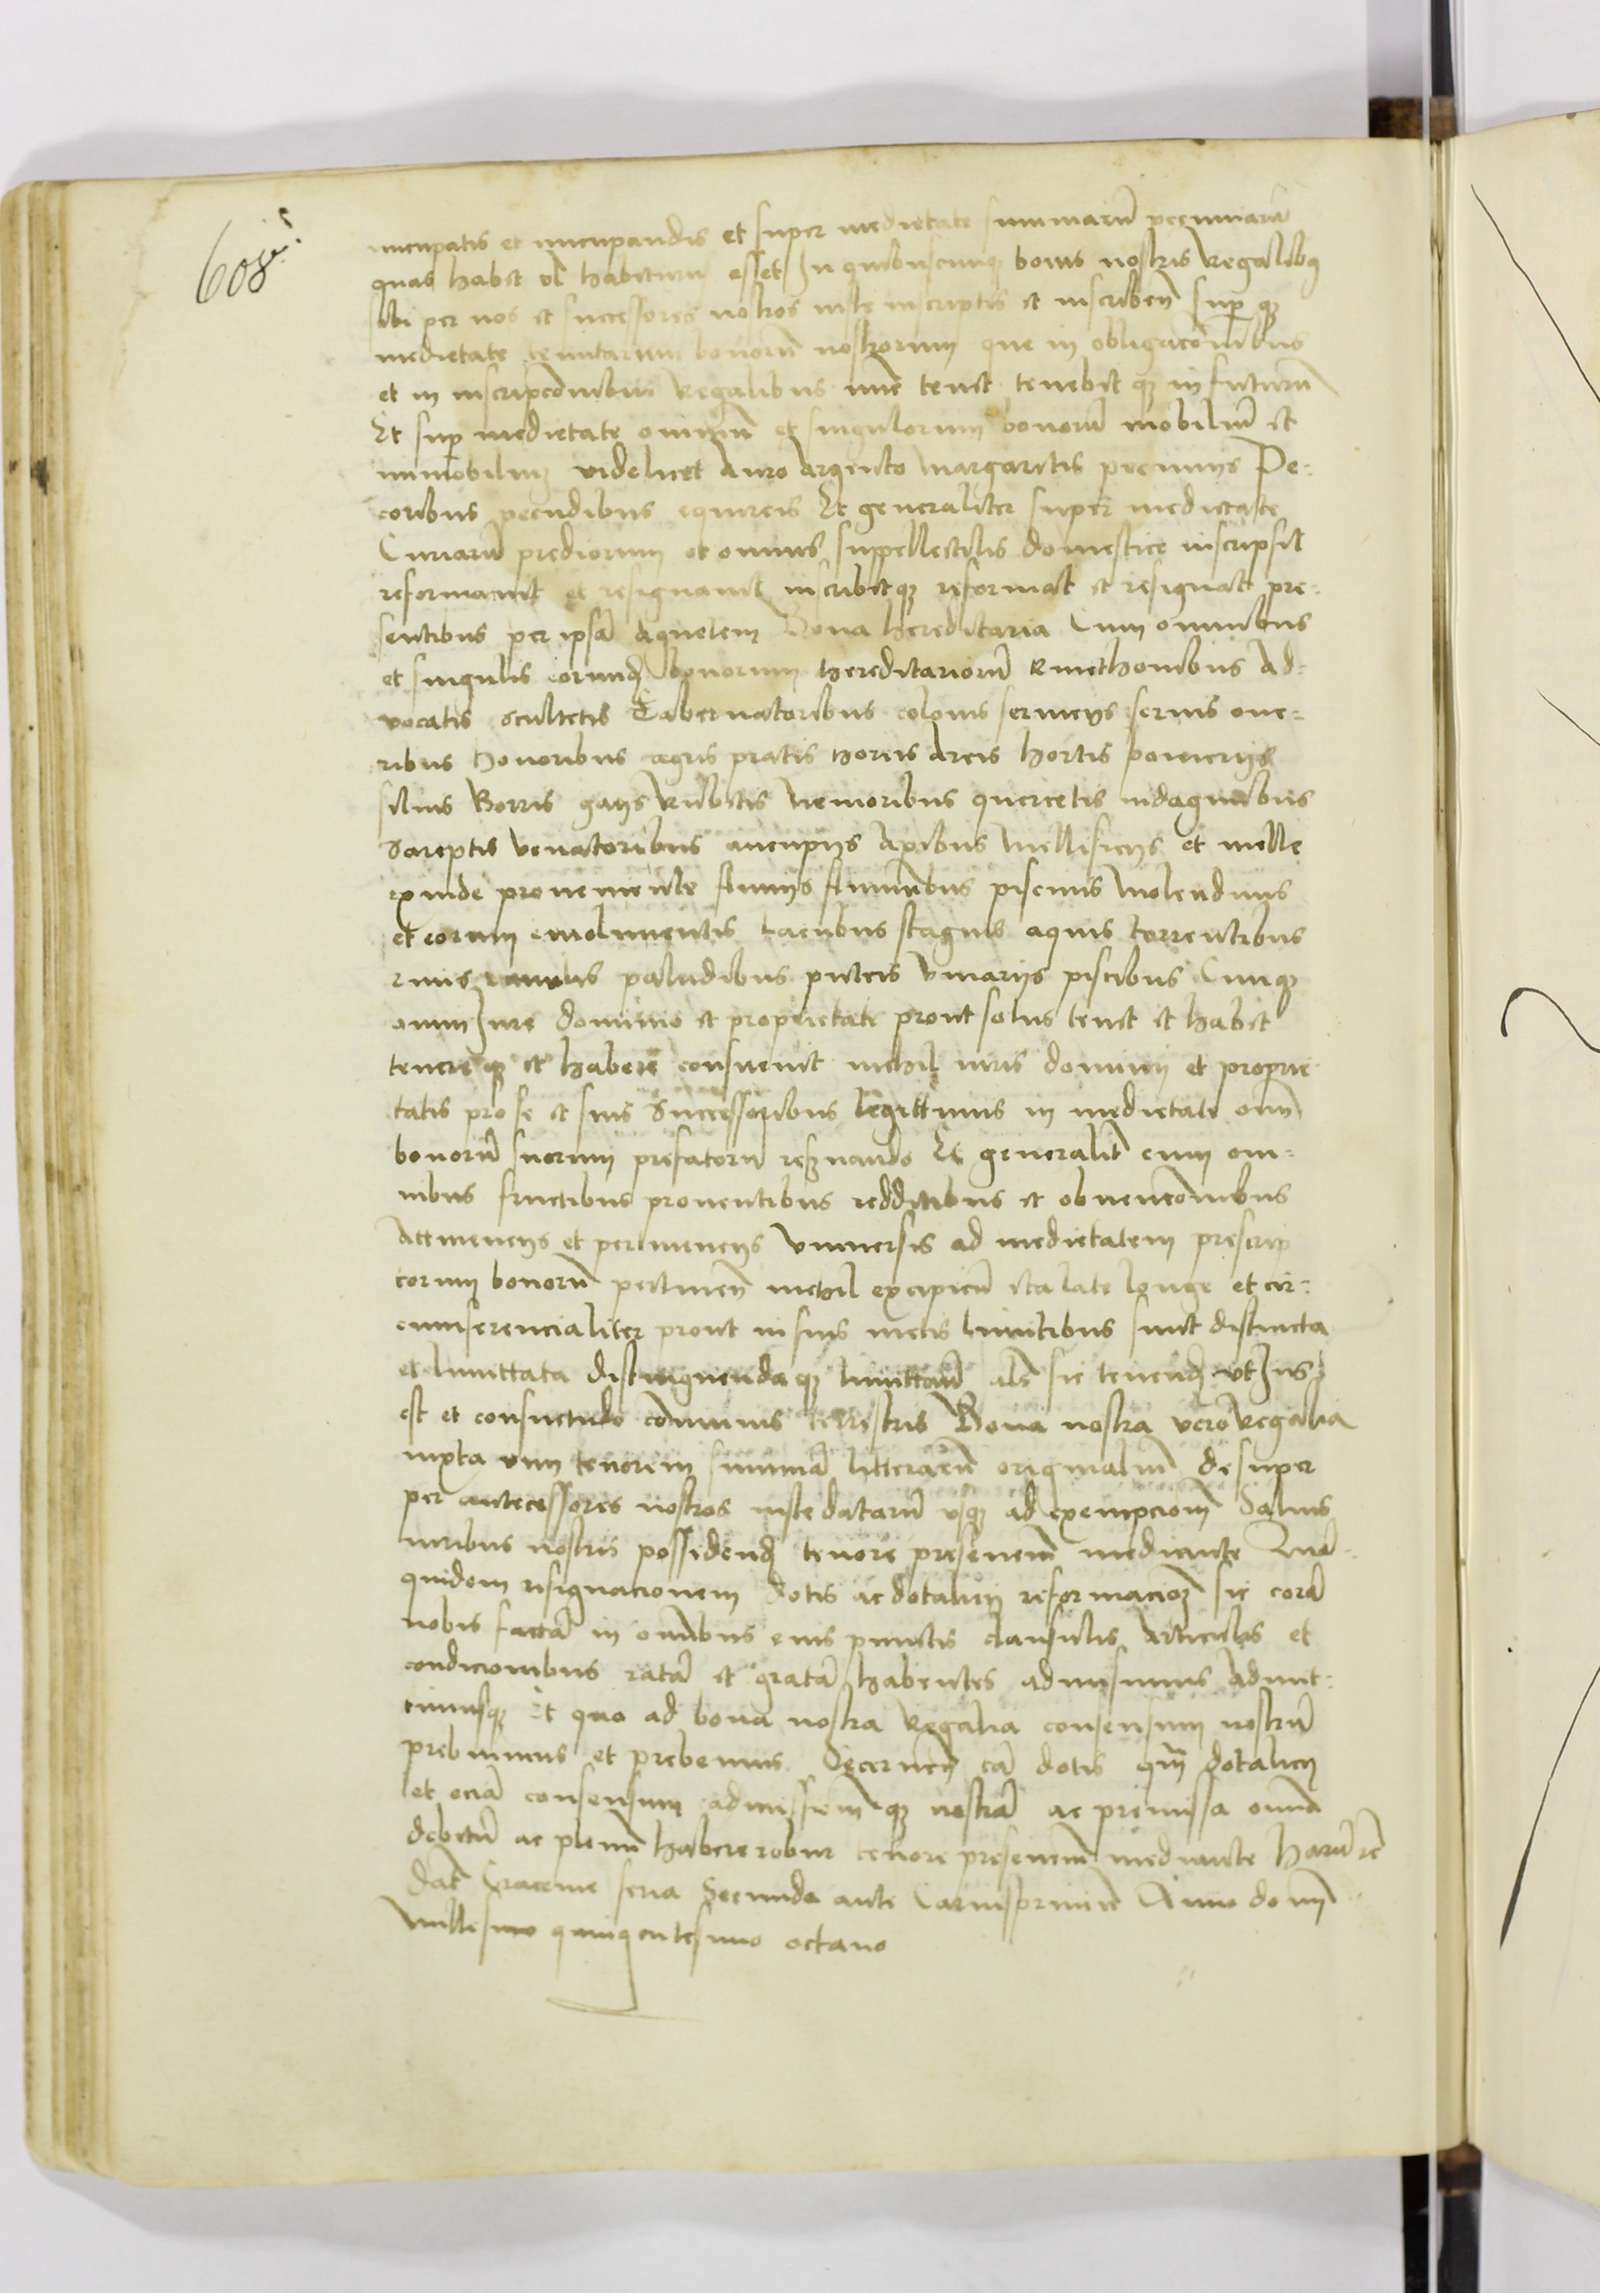 608
nuncupatis et nuncupandis et super medietate summarū pecuniarū
quas habet vl habiturus esset In quibuscunq bonis nostris Regalibq
ibi per nos et successores nostros iuste inscriptis et inscriben̄ sup q
medietate tenutarum bonorū nostrorum que in obligacōnibus
et in inscripcōnibus Regalibus nūc tenet tenebit q in futurū
Et sup medietate omniū et singulorum bonorū mobiliū et
immobiliū videlicet Auro Argento margaritis pecunijs Pe-
coribus pecudibus equireis Et generaliter super medietate
Curiarū prediorum et omnis suppellectilis domestice inscripsit
reformavit et resignavit inscribit q reformat et resignat pre-
sentibus per ipsā Agnetem Bona hereditaria Cum omnibus
et singulis eorund bonorum hereditariorū kmethonibus Ad-
vocatis scultetis Tabernatoribus colonis servicijs servis one-
ribus honoribus agris pratis horeis areis hortis pomerijs
silvis Borris gaijs Rubetis Nemoribus quercetis indaginibus
Sareptis venatoribus aucupijs Apibus Mellificijs et melle
exinde proveniente fluvijs fluminibus piscinis Molendinis
et eorum emolumentis Lacubus stagnis aquis torrentibus
rivis paludibus puteis vivarijs piscibus Cunq
omni Iure dominio et proprietate prout solus tenet et habet
tenere q et habere consuevit nichil iuris dominij et proprie
tatis pro se et suis Successoribus legittimis in medietate omn̄
bonorū suorum prefatorū reservando Et generalit cum om-
nibus fructibus proventibus redditibus et obvencōnibus
Attinencijs et pertinencijs vniversis ad medietatem prescrip
torum bonorū pertinen̄ nichil excipien̄ ita late longe et cir-
cumferencialiter prout in suis metis limitibus sunt distincta
et limittata distinguenda q limittan̄ als sic tenend vt Ius
est et consuetudo cōmunis terrestris Bona nostra vero Regalia
iuxta vim tenorem summā litterarū originaliū desuper
per antecessores nostros iuste datarū vsq ad exempcionē Salvis
iuribus nostris possidend tenore presenciū mediante Quā
quidem resignacionem dotis ac dotalicij reformacioē sic corā
nobis factā in omnibus eius punctis clausulis Articulis et
condicionibus ratā et gratā habentes admisimus Admit-
timusq Et quo ad bona nostra Regalia consensum nostrū
prebuimus et prebemus Decernen̄ eā dotis qm̄ dotalicij
et eciā consensum admissionē q nostrā ac premissa omīa
debitū ac plenū habere robur tenore presenciū mediante Harū &c
Dat Cracovie feria Secunda ante Carnisprivii Anno domī
Millesimo quingentesimo octavo